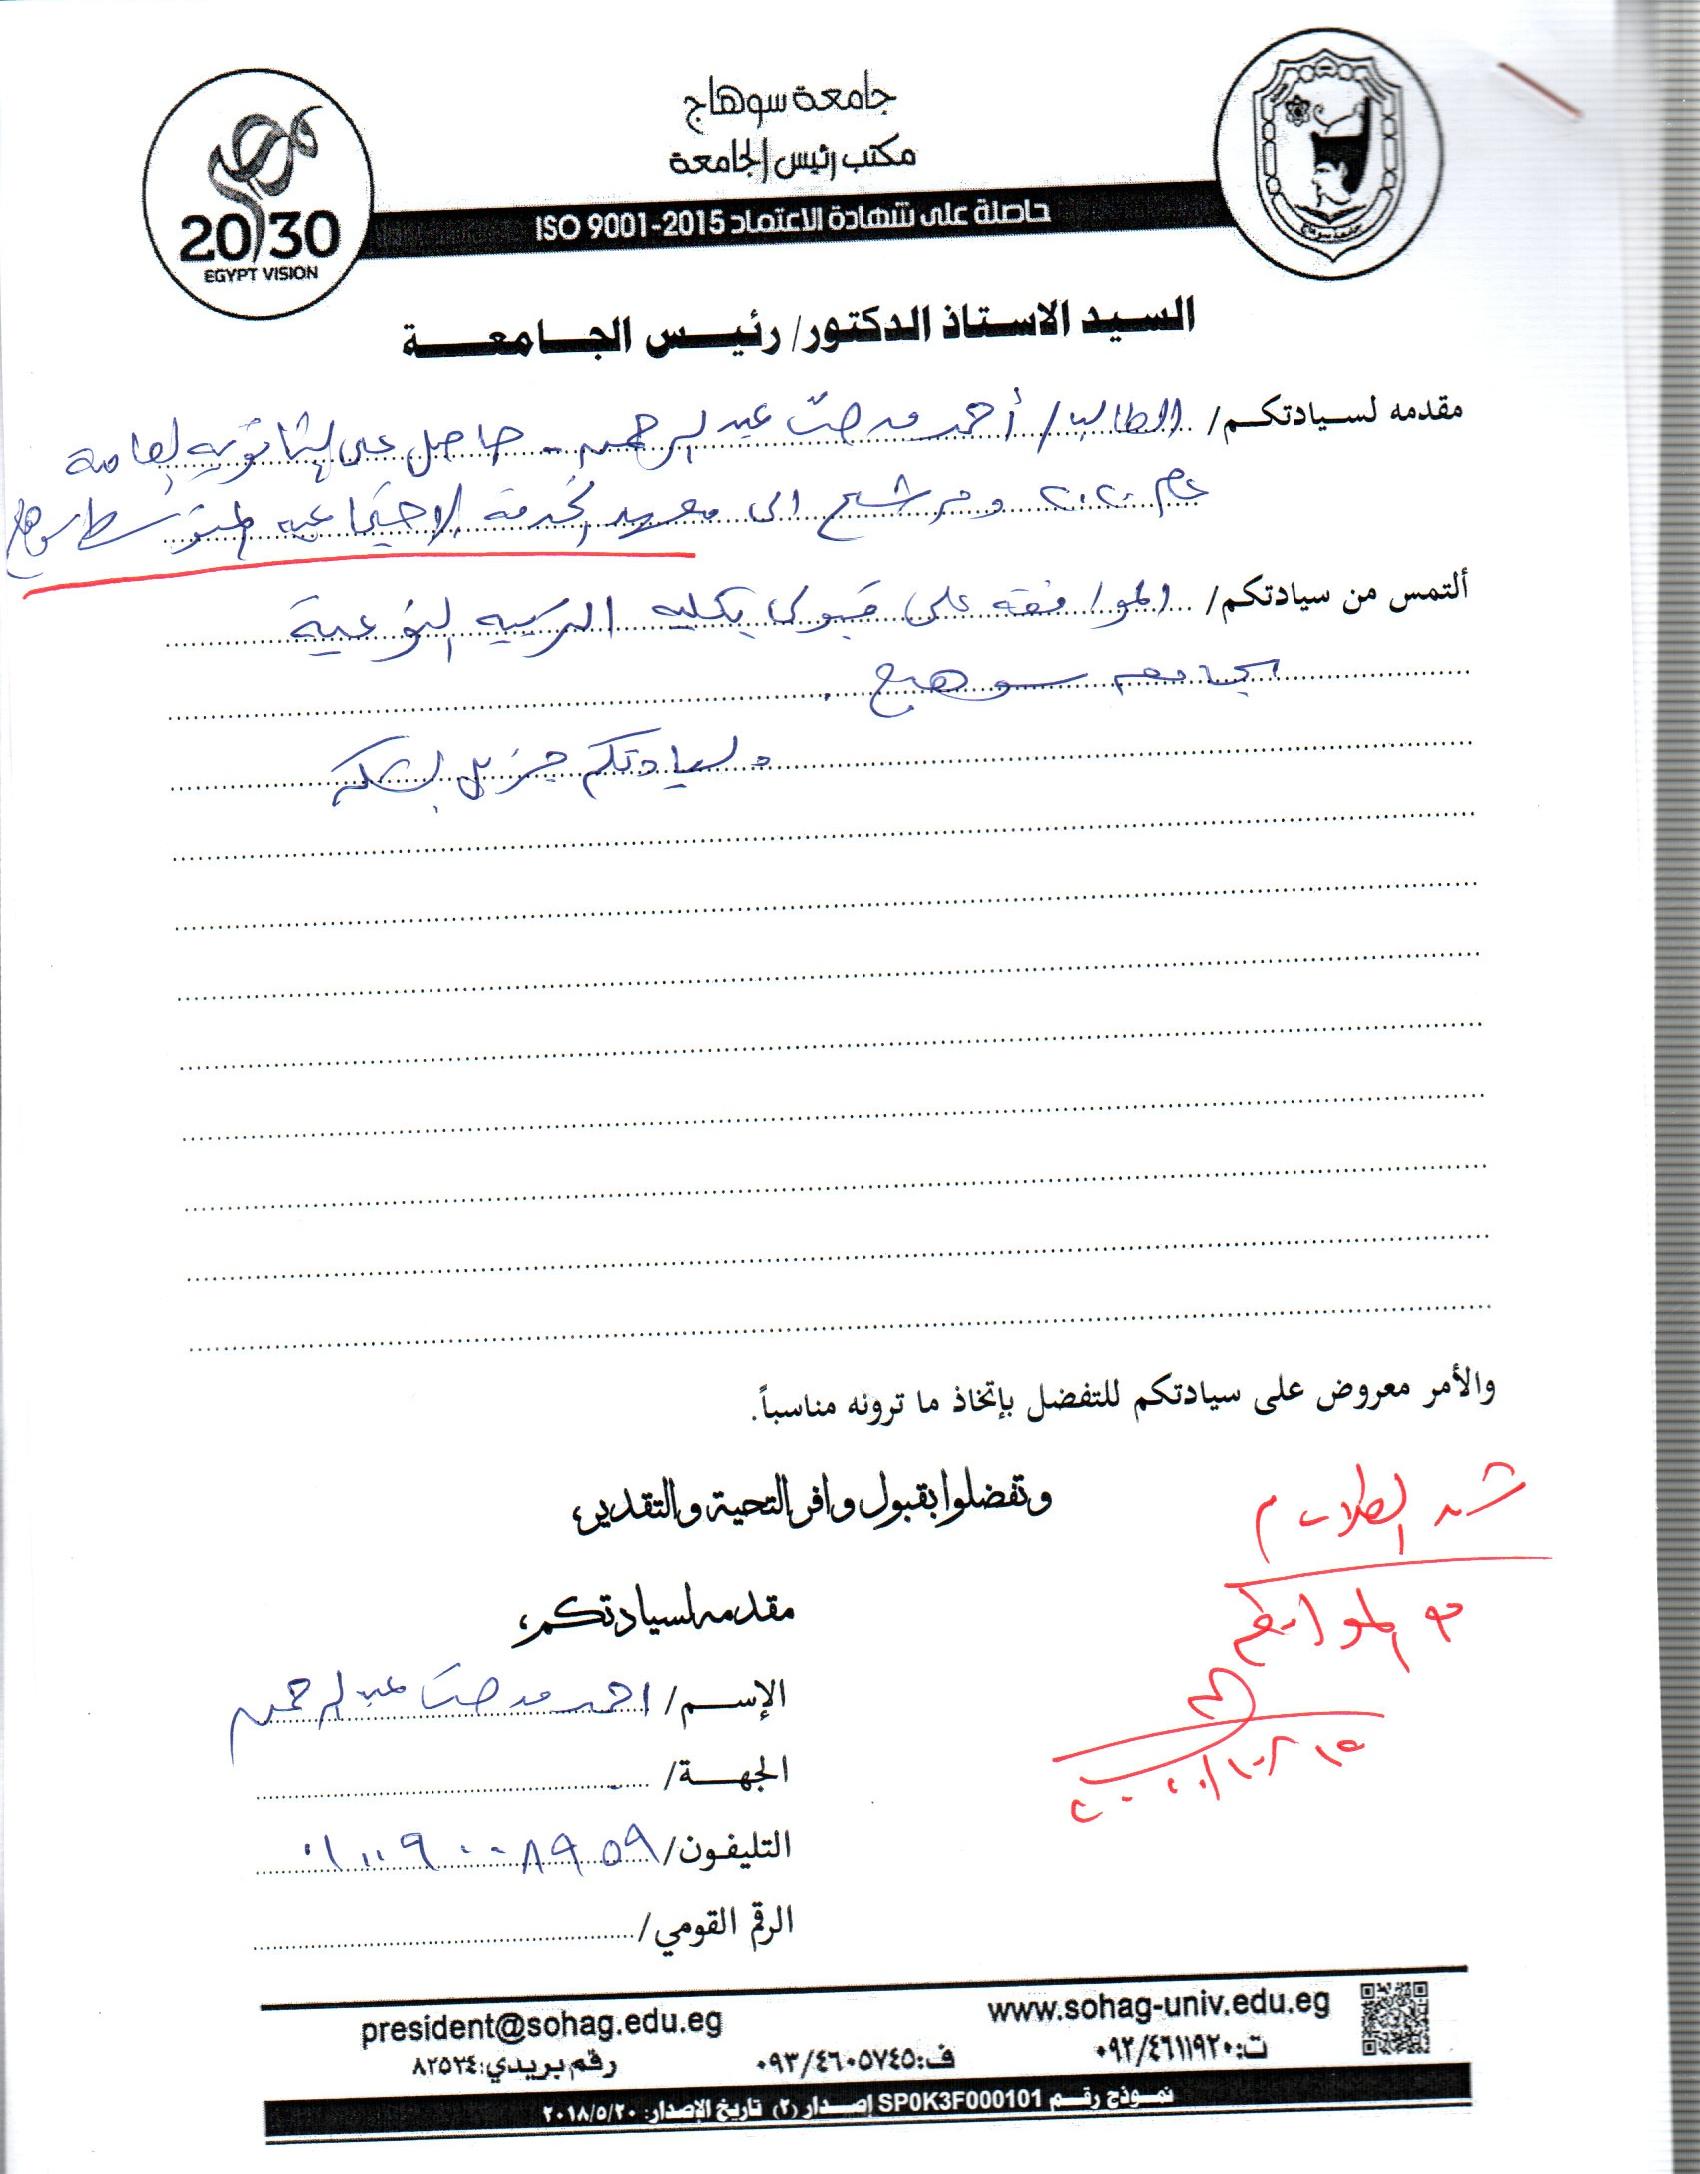 جامعة سوهاج
مكتب رئيس الجامعة
حاصلة على شهادة الاعتماد ISO 9001-2015
مصر
2030
EGYPT VISION
السيد الاستاذ الدكتور/ رئيس الجامعة
مقدمه لسيادتكم/ الطالب/ أحمد مدحت عبد الرحمن - حاصل على الثانوية العامة
عام ٢٠٢٠ ومرشح الى معهد الخدمة الاجتماعيه المتوسط سوهاج
ألتمس من سيادتكم/ الموافقه على قبولى بكليه التربيه النوعية
بجامعة سوهاج.
ولسيادتكم جزيل الشكر
والأمر معروض على سيادتكم للتفضل بإتخاذ ما ترونه مناسباً.
وتفضلوا بقبول وافر التحية والتقدير،
الطلاب
مقدمه لسيادتكم،
الإسم/ احمد مدحت عبد الرحمن
الجهة/
التليفون/ ٠١٠٠٩٠٠٨٩٥٩
الرقم القومي/
president@sohag.edu.eg www.sohag-univ.edu.eg
ت:٠٩٣/٤٦١١٩٢٠ ف:٠٩٣/٤٦٠٥٧٤٥ رقم بريدي:٨٢٥٢٤
نموذج رقم SP0K3F000101 إصدار (٢) تاريخ الإصدار: ٢٠١٨/٥/٢٠